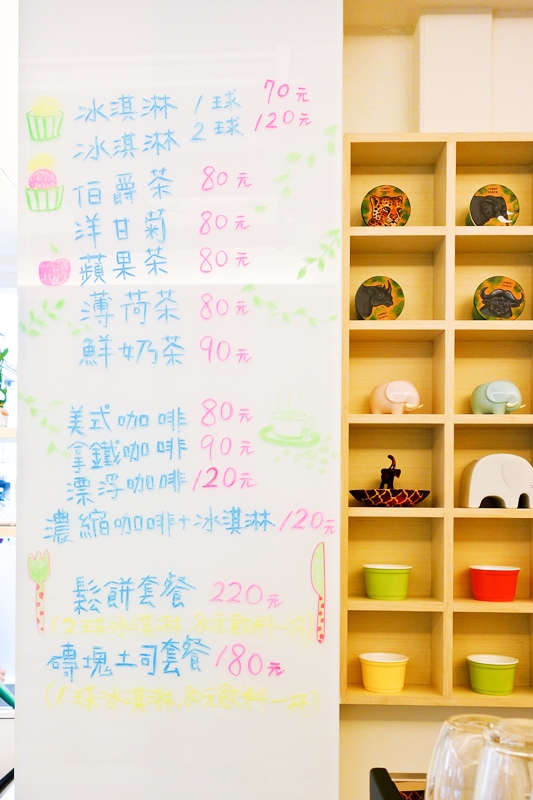 冰淇淋 1球 70元
冰淇淋 2球 120元
伯爵茶 80元
洋甘菊 80元
蘋果茶 80元
薄荷茶 80元
鮮奶茶 90元
美式咖啡 80元
拿鐵咖啡 90元
漂浮咖啡 120元
濃縮咖啡+冰淇淋 120元
鬆餅套餐 220元
(2球冰淇淋,80元飲料一杯)
磚塊土司套餐 180元
(1球冰淇淋,80元飲料一杯)